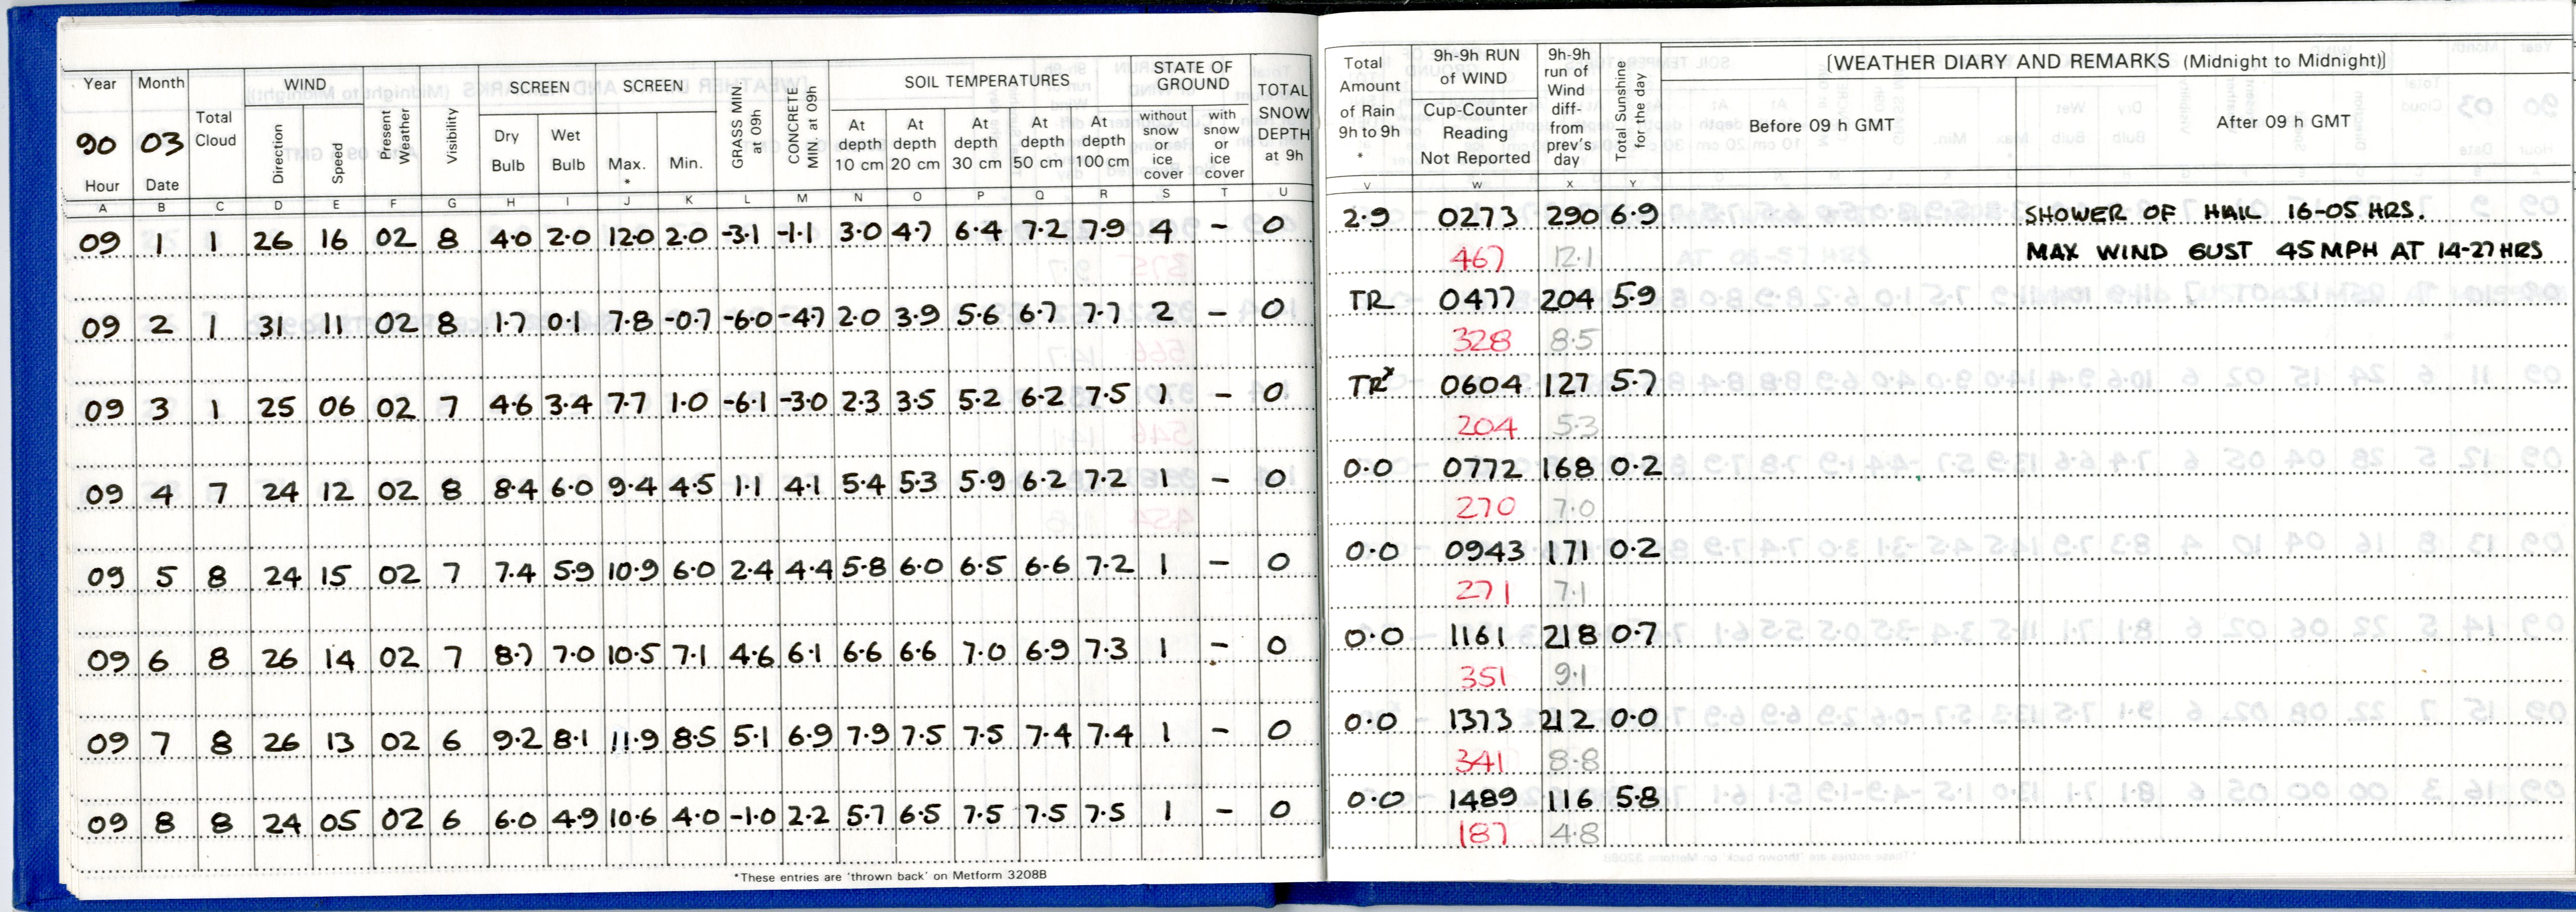 Year Month WIND SCREEN SCREEN SOIL TEMPERATURES STATE OF GROUND
90 03 Total Cloud Direction Speed Present Weather Visibility Dry Bulb Wet Bulb Max. * Min. GRASS MIN. at 09h CONCRETE MIN. at 09h At depth 10 cm At depth 20 cm At depth 30 cm At depth 50 cm At depth 100 cm without snow or ice cover with snow or ice cover TOTAL SNOW DEPTH at 9h
Hour Date
A B C D E F G H I J K L M N O P Q R S T U
09 1 1 26 16 02 8 4.0 2.0 12.0 2.0 -3.1 -1.1 3.0 4.7 6.4 7.2 7.9 4 - 0
09 2 1 31 11 02 8 1.7 0.1 7.8 -0.7 -6.0 -4.7 2.0 3.9 5.6 6.7 7.7 2 - 0
09 3 1 25 06 02 7 4.6 3.4 7.7 1.0 -6.1 -3.0 2.3 3.5 5.2 6.2 7.5 1 - 0
09 4 7 24 12 02 8 8.4 6.0 9.4 4.5 1.1 4.1 5.4 5.3 5.9 6.2 7.2 1 - 0
09 5 8 24 15 02 7 7.4 5.9 10.9 6.0 2.4 4.4 5.8 6.0 6.5 6.6 7.2 1 - 0
09 6 8 26 14 02 7 8.7 7.0 10.5 7.1 4.6 6.1 6.6 6.6 7.0 6.9 7.3 1 - 0
09 7 8 26 13 02 6 9.2 8.1 11.9 8.5 5.1 6.9 7.9 7.5 7.5 7.4 7.4 1 - 0
09 8 8 24 05 02 6 6.0 4.9 10.6 4.0 -1.0 2.2 5.7 6.5 7.5 7.5 7.5 1 - 0
*These entries are 'thrown back' on Metform 3208B
Total Amount of Rain 9h to 9h * 9h-9h RUN of WIND Cup-Counter Reading Not Reported 9h-9h run of Wind diff- from prev's day Total Sunshine for the day [WEATHER DIARY AND REMARKS (Midnight to Midnight)]
Before 09 h GMT After 09 h GMT
V W X Y
2.9 0273 290 6.9 SHOWER OF HAIL 16-05 HRS.
467 12.1 MAX WIND GUST 45 MPH AT 14-27 HRS
TR 0477 204 5.9
328 8.5
TRx 0604 127 5.7
204 5.3
0.0 0772 168 0.2
270 7.0
0.0 0943 171 0.2
271 7.1
0.0 1161 218 0.7
351 9.1
0.0 1373 212 0.0
341 8.8
0.0 1489 116 5.8
187 4.8